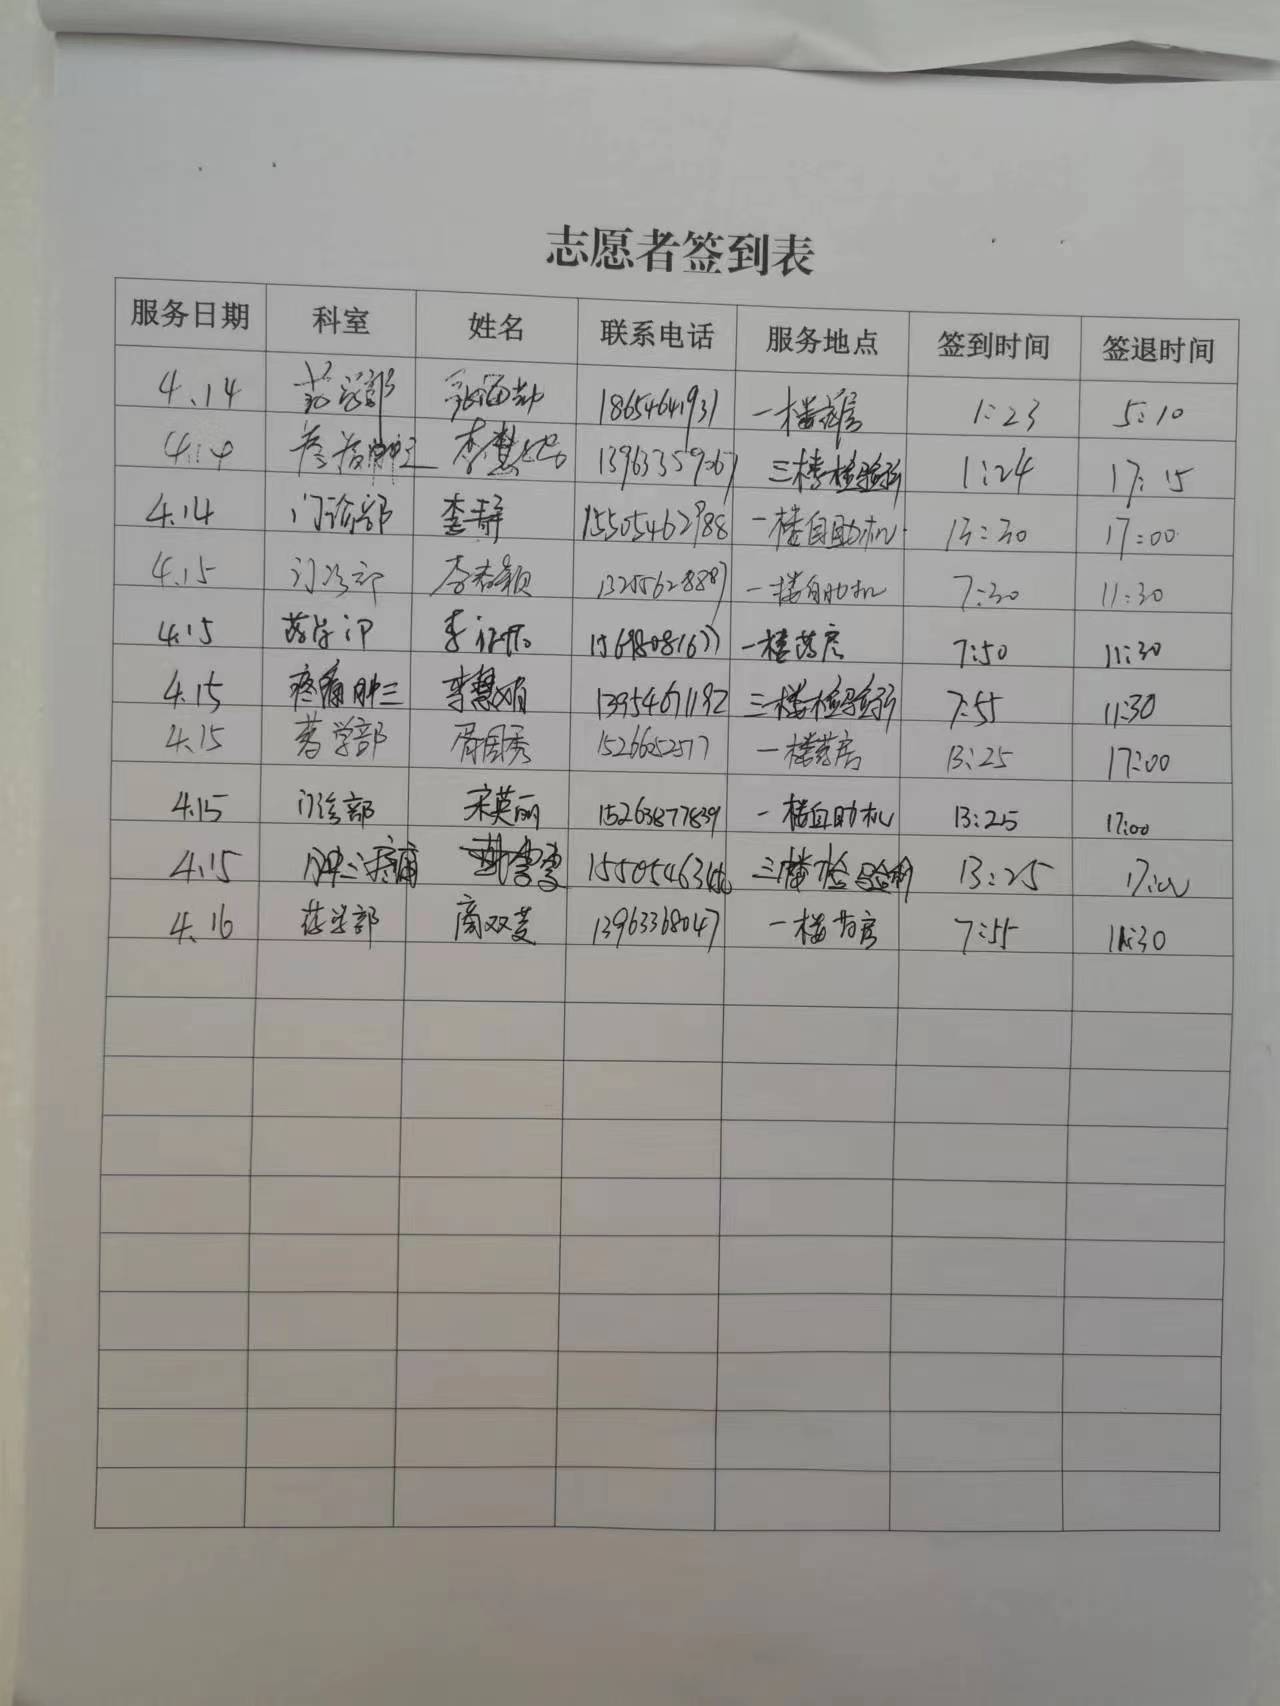 志愿者签到表
服务日期 科室 姓名 联系电话 服务地点 签到时间 签退时间
4.14 药学部 18654641931 一楼药房 1:23 5:10
4.14 李慧 三楼检验所 1:24 17:15
4.14 门诊部 李静 15505462988 一楼自助机 13:30 17:00
4.15 门诊部 李春颖 13255628887 一楼自助机 7:30 11:30
4.15 药学部 李 一楼药房 7:50 11:30
4.15 疼痛肿三 李慧娟 13954671192 三楼检验所 7:55 11:30
4.15 药学部 胥国秀 1526652517 一楼药房 13:25 17:00
4.15 门诊部 宋英丽 15263877839 一楼自助机 13:25 17:00
4.15 肿三疼痛 三楼检验所 13:25 17:00
4.16 药学部 商双芝 13963368047 一楼药房 7:55 11:30